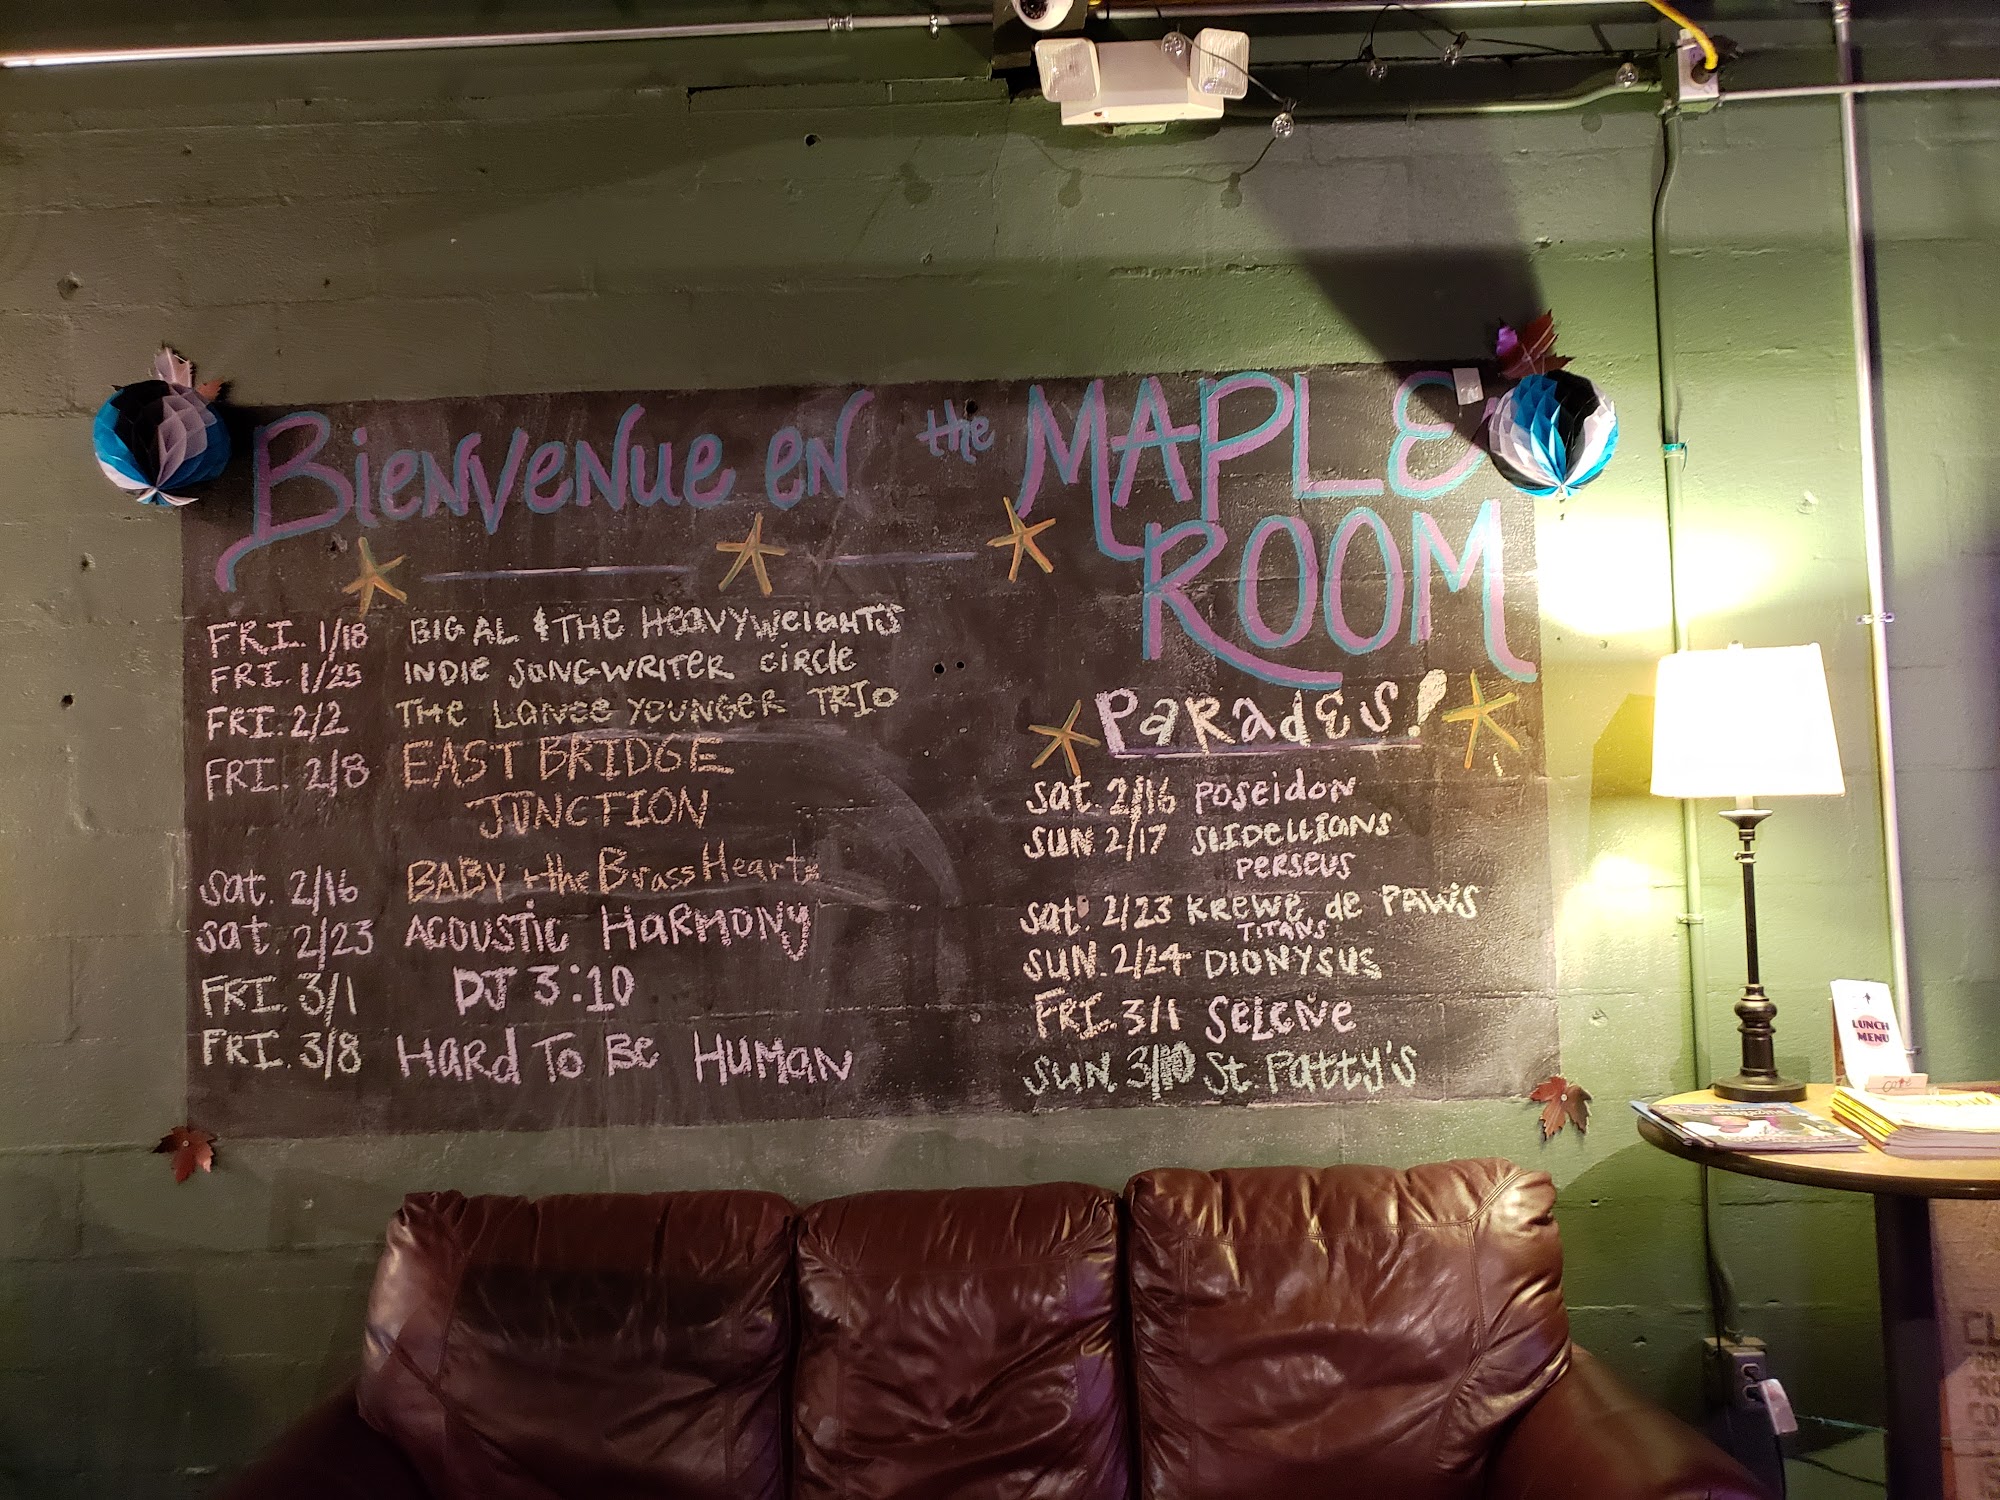 Bienvenue en the MAPLE
ROOM
FRI. 1/18 BIG AL & THE HEAVYWEIGHTS
FRI. 1/25 INDIE SONGWRITER CIRCLE
FRI. 2/2 THE LANCE YOUNGER TRIO
FRI. 2/8 EAST BRIDGE
JUNCTION
Sat. 2/16 BABY + the Brass Hearts
Sat. 2/23 ACOUSTIC HARMONY
FRI. 3/1 DJ 3:10
FRI. 3/8 HARD TO BE HUMAN
PARADES!
Sat. 2/16 POSEIDON
SUN 2/17 SLIDELLIANS
PERSEUS
Sat. 2/23 KREWE de PAWS
TITANS
SUN. 2/24 DIONYSUS
FRI. 3/1 SELENE
SUN. 3/10 St Patty's
LUNCH
MENU